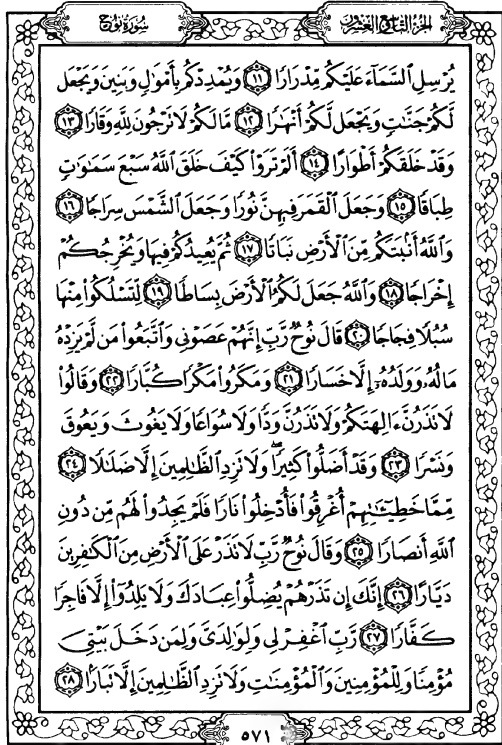 سُورَةُ نُوحٍ الجُزءُ التَّاسِعُ وَالعِشْرُونَ
يُرْسِلِ ٱلسَّمَآءَ عَلَيْكُم مِّدْرَارًا ١١ وَيُمْدِدْكُم بِأَمْوَٰلٍ وَبَنِينَ وَيَجْعَل
لَّكُمْ جَنَّٰتٍ وَيَجْعَل لَّكُمْ أَنْهَٰرًا ١٢ مَّا لَكُمْ لَا تَرْجُونَ لِلَّهِ وَقَارًا ١٣
وَقَدْ خَلَقَكُمْ أَطْوَارًا ١٤ أَلَمْ تَرَوْا۟ كَيْفَ خَلَقَ ٱللَّهُ سَبْعَ سَمَٰوَٰتٍ
طِبَاقًا ١٥ وَجَعَلَ ٱلْقَمَرَ فِيهِنَّ نُورًا وَجَعَلَ ٱلشَّمْسَ سِرَاجًا ١٦
وَٱللَّهُ أَنۢبَتَكُم مِّنَ ٱلْأَرْضِ نَبَاتًا ١٧ ثُمَّ يُعِيدُكُمْ فِيهَا وَيُخْرِجُكُمْ
إِخْرَاجًا ١٨ وَٱللَّهُ جَعَلَ لَكُمُ ٱلْأَرْضَ بِسَاطًا ١٩ لِّتَسْلُكُوا۟ مِنْهَا
سُبُلًا فِجَاجًا ٢٠ قَالَ نُوحٌ رَّبِّ إِنَّهُمْ عَصَوْنِى وَٱتَّبَعُوا۟ مَن لَّمْ يَزِدْهُ
مَالُهُۥ وَوَلَدُهُۥٓ إِلَّا خَسَارًا ٢١ وَمَكَرُوا۟ مَكْرًا كُبَّارًا ٢٢ وَقَالُوا۟
لَا تَذَرُنَّ ءَالِهَتَكُمْ وَلَا تَذَرُنَّ وَدًّا وَلَا سُوَاعًا وَلَا يَغُوثَ وَيَعُوقَ
وَنَسْرًا ٢٣ وَقَدْ أَضَلُّوا۟ كَثِيرًا ۖ وَلَا تَزِدِ ٱلظَّٰلِمِينَ إِلَّا ضَلَٰلًا ٢٤
مِّمَّا خَطِيٓـَٰٔتِهِمْ أُغْرِقُوا۟ فَأُدْخِلُوا۟ نَارًا فَلَمْ يَجِدُوا۟ لَهُم مِّن دُونِ
ٱللَّهِ أَنصَارًا ٢٥ وَقَالَ نُوحٌ رَّبِّ لَا تَذَرْ عَلَى ٱلْأَرْضِ مِنَ ٱلْكَٰفِرِينَ
دَيَّارًا ٢٦ إِنَّكَ إِن تَذَرْهُمْ يُضِلُّوا۟ عِبَادَكَ وَلَا يَلِدُوٓا۟ إِلَّا فَاجِرًا
كَفَّارًا ٢٧ رَّبِّ ٱغْفِرْ لِى وَلِوَٰلِدَىَّ وَلِمَن دَخَلَ بَيْتِىَ
مُؤْمِنًا وَلِلْمُؤْمِنِينَ وَٱلْمُؤْمِنَٰتِ وَلَا تَزِدِ ٱلظَّٰلِمِينَ إِلَّا تَبَارًۢا ٢٨
٥٧١